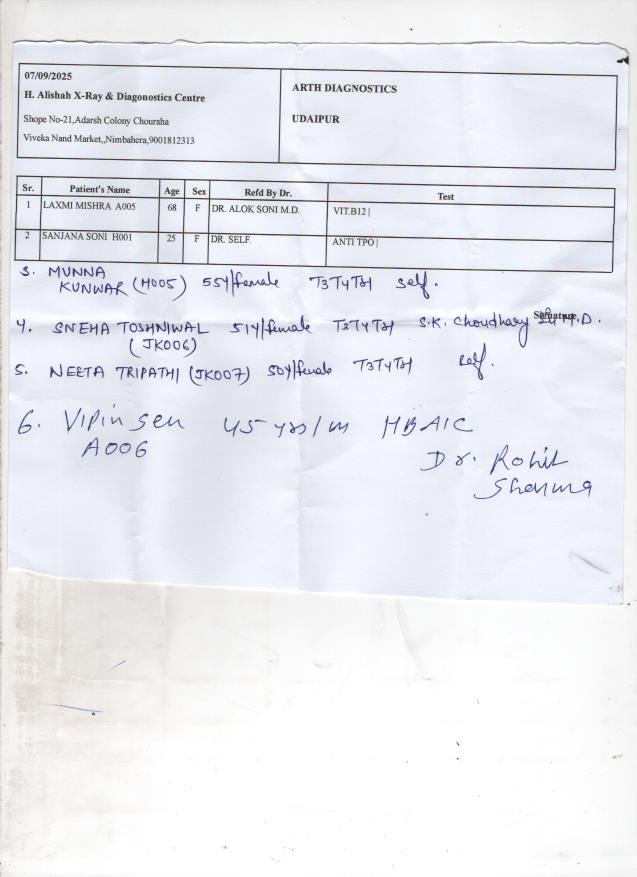 07/09/2025
H. Alishah X-Ray & Diagonostics Centre
Shope No-21,Adarsh Colony Chouraha
Viveka Nand Market,,Nimbahera,9001812313
ARTH DIAGNOSTICS
UDAIPUR
Sr. Patient's Name Age Sex Refd By Dr. Test
1 LAXMI MISHRA A005 68 F DR. ALOK SONI M.D. VIT.B12|
2 SANJANA SONI H001 25 F DR. SELF. ANTI TPO|
3. MUNNA
KUNWAR (H005) 55Y/female T3T4TSH self.
Signature,
4. SNEHA TOSHNIWAL 51Y/female T3T4TSH S.K. Choudhary M.D.
(JK006)
5. NEETA TRIPATHI (JK007) 50Y/female T3T4TSH self.
6. Vipin sen 45 yrs/m HBA1C
A006
Dr. Rohit
Sharma